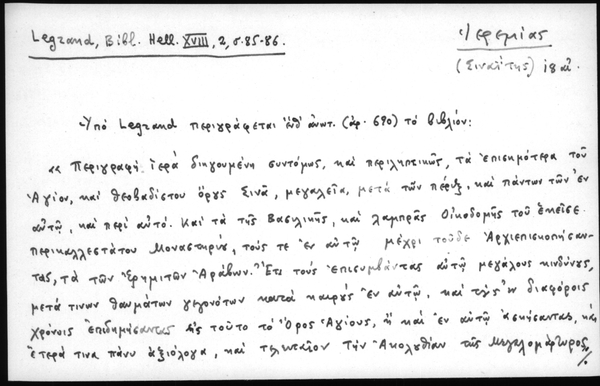 Legrand, Bibl. Hell. XVIII, 2, σ. 85-86.
Ἱερεμίας
(Σιναΐτης) 18 αἰ.
Ὑπὸ Legrand περιγράφεται ἐνθ' ἀνωτ. (ἀρ. 690) τὸ βιβλίον:
«Περιγραφὴ ἱερὰ διηγουμένη συντόμως, καὶ περιληπτικῶς, τὰ ἐπισημότερα τοῦ
Ἁγίου, καὶ θεοβαδίστου ὄρους Σινᾶ, μεγαλεῖα, μετὰ τῶν πέριξ, καὶ πάντων τῶν ἐν
αὐτῷ, καὶ περὶ αὐτό. Καὶ τὰ τῆς Βασιλικῆς, καὶ λαμπρᾶς Οἰκοδομῆς τοῦ ἐκεῖσε
περικαλλεστάτου Μοναστηρίου, τούς τε ἐν αὐτῷ μέχρι τοῦδε Ἀρχιεπισκοπήσαν-
τας, τὰ τῶν Ἐρημιτῶν Ἀράβων. Ἔτι τοὺς ἐπισυμβάντας αὐτῷ μεγάλους κινδύνους,
μετά τινων θαυμάτων γεγονότων κατὰ καιροὺς ἐν αὐτῷ, καὶ τοὺς ἐν διαφόροις
χρόνοις ἐπιδημήσαντας εἰς τοῦτο τὸ Ὄρος Ἁγίους, ἢ καὶ ἐν αὐτῷ ἀσκήσαντας, καὶ
ἕτερά τινα πάνυ ἀξιόλογα, καὶ τελευταῖον τὴν Ἀκολυθίαν τῆς Μεγαλομάρτυρος